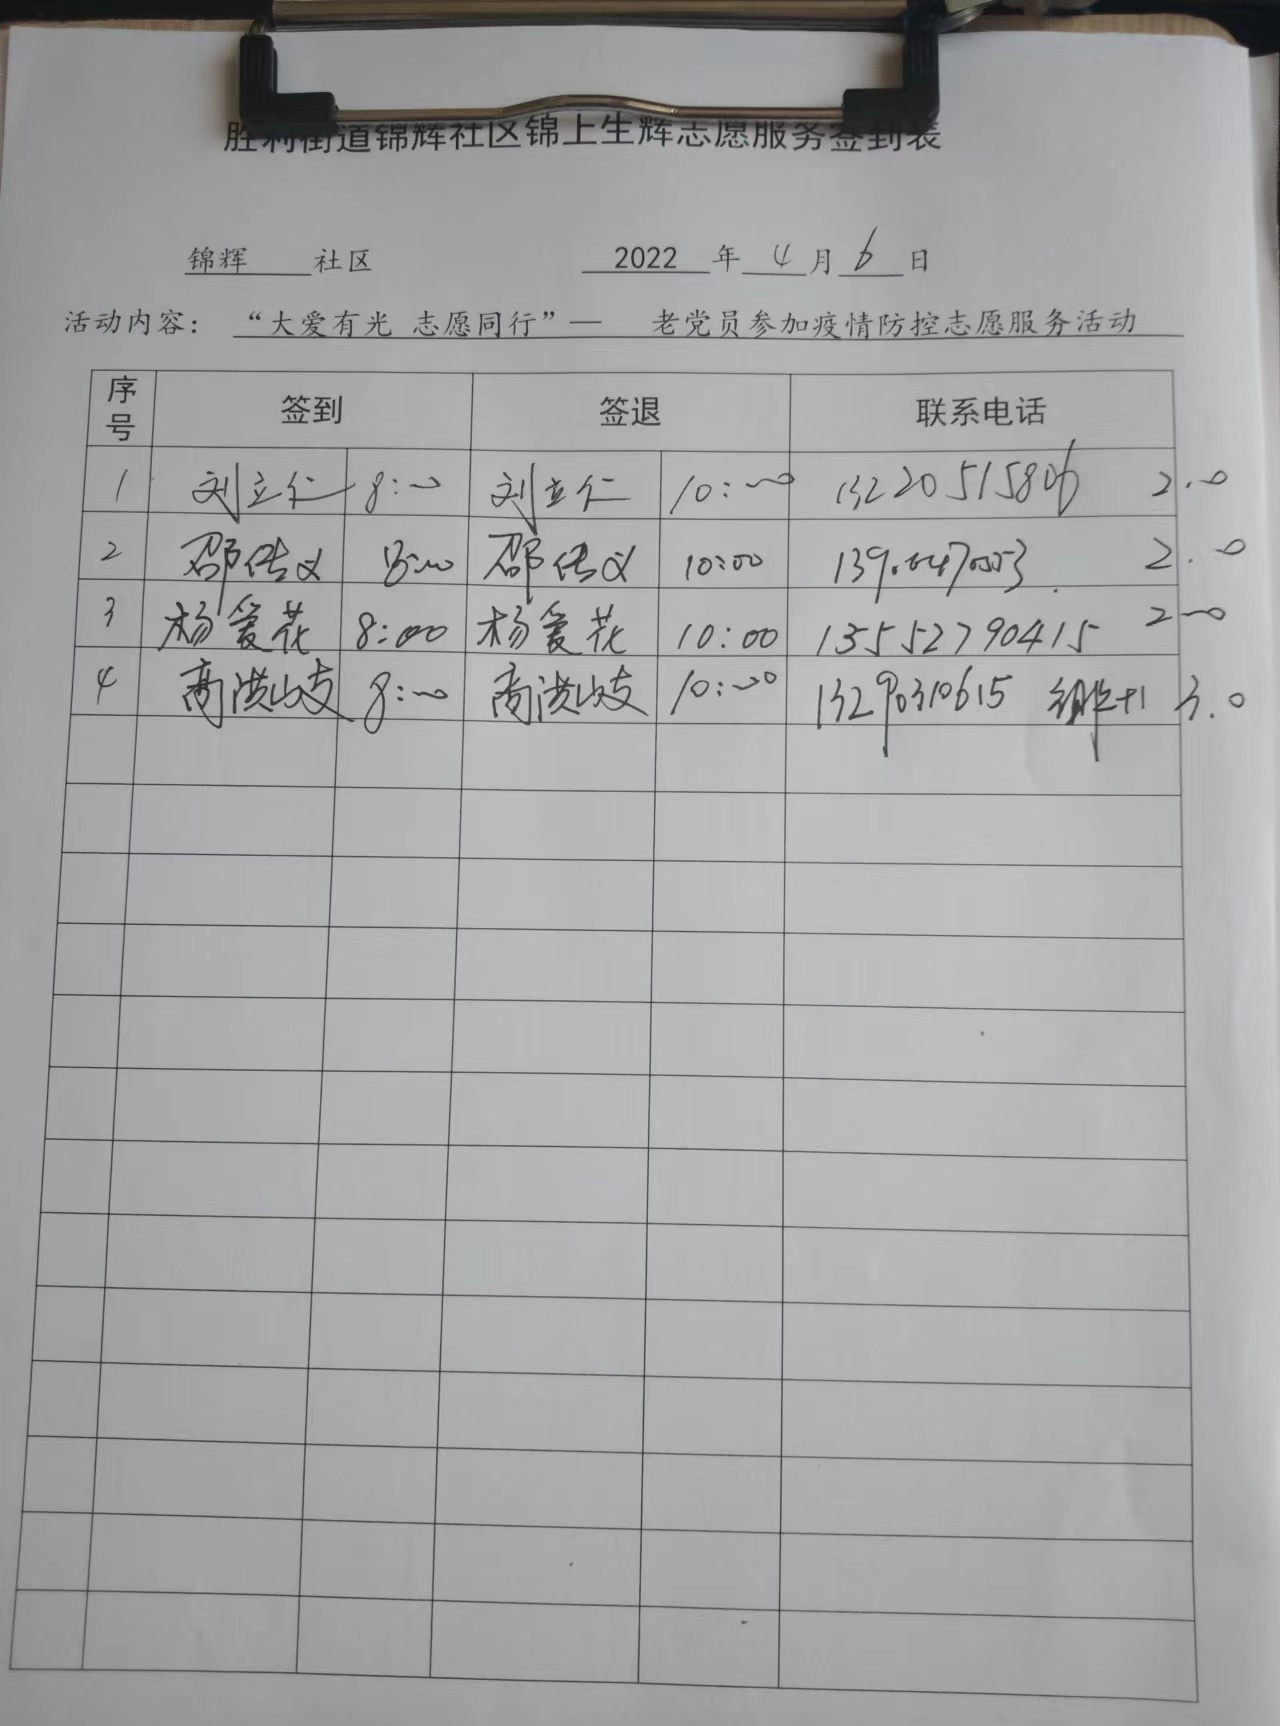 胜利街道锦辉社区锦上生辉志愿服务签到表
锦辉 社区 2022 年 4 月 6 日
活动内容： “大爱有光 志愿同行”— 老党员参加疫情防控志愿服务活动
序号 签到 签退 联系电话
1 刘立仁 8:00 刘立仁 10:00 13220515806 2.0
2 邵传义 8:00 邵传义 10:00 2.0
3 杨爱花 8:00 杨爱花 10:00 13552790415 2.0
4 高洪岐 8:00 高洪岐 10:00 13290310615 组织+1 3.0